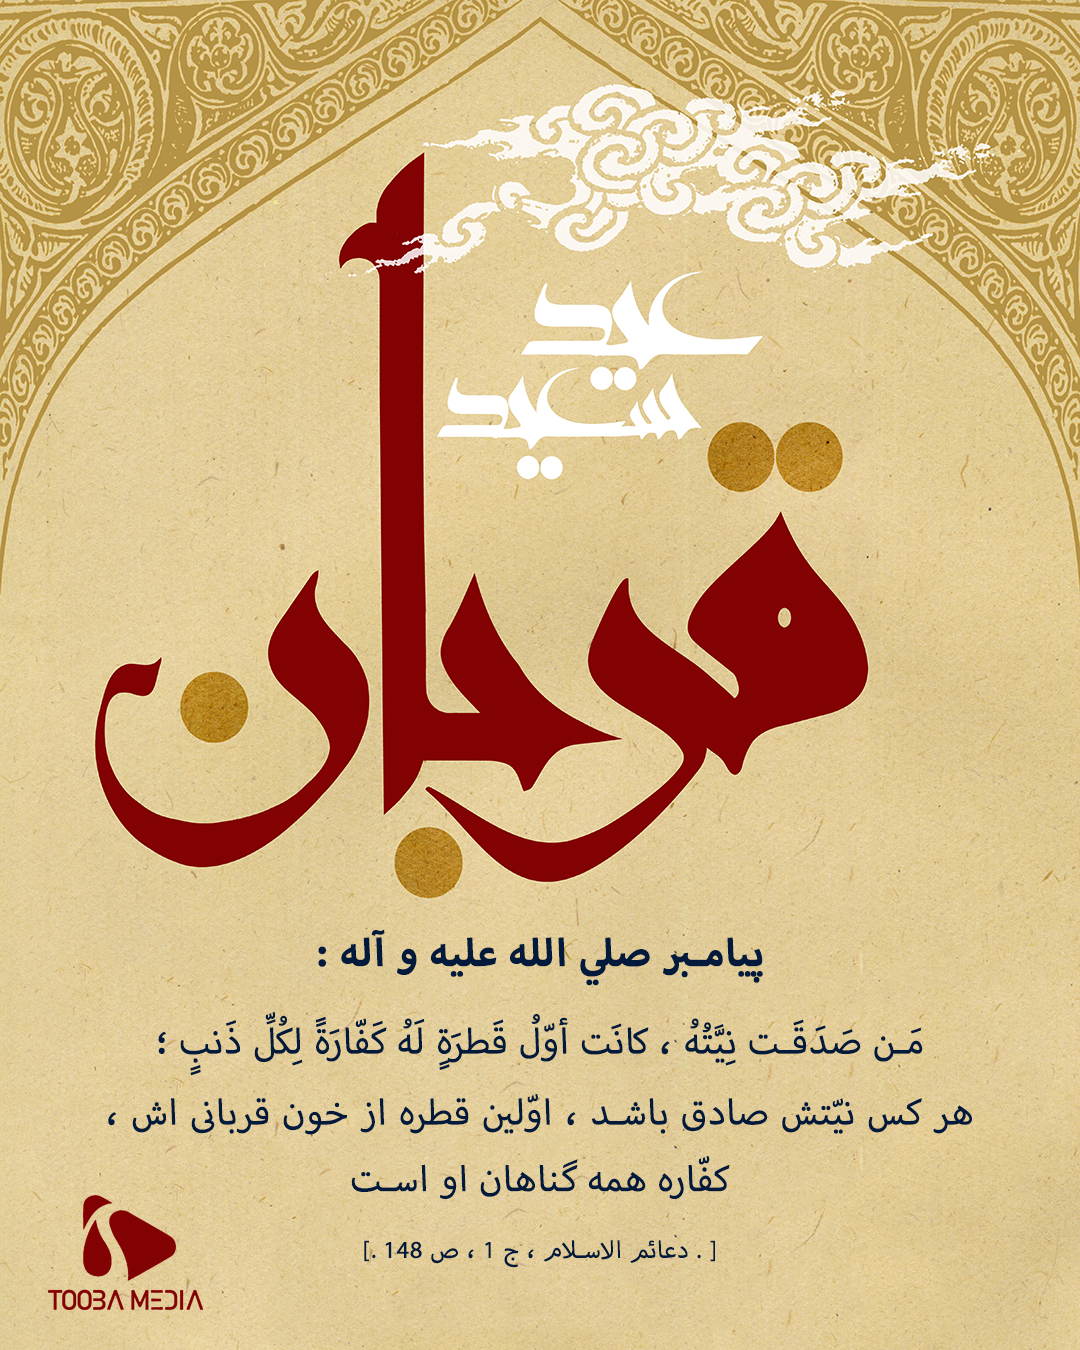 عید
سعید
قربان
پیامبر صلي الله علیه و آله :
مَن صَدَقَت نِیَّتُهُ ، کانَت أوّلُ قَطرَةٍ لَهُ کَفّارَةً لِکُلِّ ذَنبٍ ؛
هر کس نیّتش صادق باشد ، اوّلین قطره از خون قربانی اش ،
کفّاره همه گناهان او است
[ . دعائم الاسلام ، ج 1 ، ص 148 .]
TOOBA MEDIA